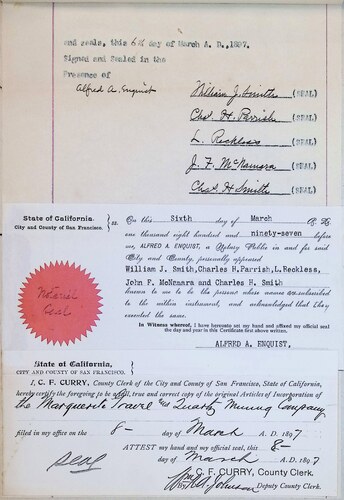 and seals, this 6th day of March A. D., 1897.
Signed and Sealed in the
Presence of
Alfred A. Enquist
William J. Smith (SEAL)
Chas. H. Parrish (SEAL)
L. Reckless (SEAL)
J. F. McNamara (SEAL)
Chas. H Smith (SEAL)
State of California, } ss. On this Sixth day of March A. D.
City and County of San Francisco.
one thousand eight hundred and ninety-seven before
me, ALFRED A. ENQUIST, a Notary Public in and for said
City and County, personally appeared
William J. Smith, Charles H. Parrish, L. Reckless,
John F. McNamara and Charles H. Smith
known to me to be the persons whose names are subscribed
to the within instrument, and acknowledged that they
executed the same.
In Witness whereof, I have hereunto set my hand and affixed my official seal
the day and year in this Certificate first above written.
ALFRED A. ENQUIST,
Notarial
Seal
State of California,
CITY AND COUNTY OF SAN FRANCISCO.
I, C. F. CURRY, County Clerk of the City and County of San Francisco, State of California,
hereby certify the foregoing to be a full, true and correct copy of the original Articles of Incorporation of
the Gravel and Quartz Mining Company
filled in my office on the 8- day of March A. D. 1897
ATTEST my hand and my official seal, this 8-
day of March A. D. 1897
Seal
C. F. CURRY, County Clerk.
Deputy County Clerk.